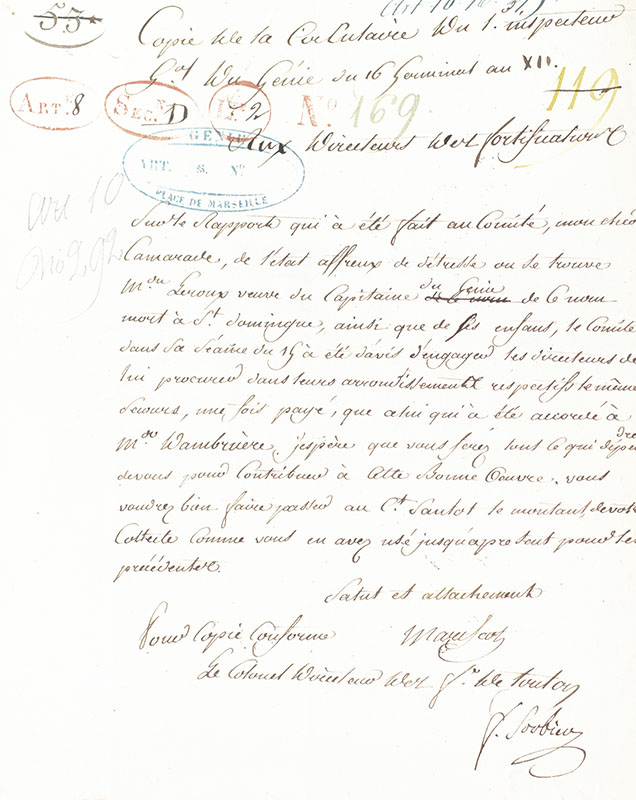 53
Art 10
Copie de la Circulaire du 1.er inspecteur
G.al du Génie du 16 Germinal an XII.
ART.e 8 SEC.N D L 2 N.o 169 119
GÉNIE
ART. 8. N.o
PLACE DE MARSEILLE
Aux Directeurs des fortifications
Art 10
No 292
Sur le Rapport qui à été fait au Comité, mon cher
Camarade, de l'état affreux de détresse ou se trouve
M.de Leroux veuve du Capitaine du Génie de ce nom
mort à S.t domingue, ainsi que de ses enfans, le Comité
dans sa séance du 15 à été d'avis d'engager les directeurs de
lui procurer dans leurs arrondissements respectifs le même
Secours, une fois payé, que celui qui à été accordé à
M.de Wambruère. j'espère que vous ferez tout ce qui dépendra
de vous pour Contribuer à cette Bonne Oeuvre. vous
voudrez bien faire passer au C.t Santot le montant de votre
Collecte comme vous en avez usé jusqu'aprésent pour les
précédentes.
Salut et attachement
Pour Copie Conforme Marescot
Le Colonel Directeur des f.ons de toulon